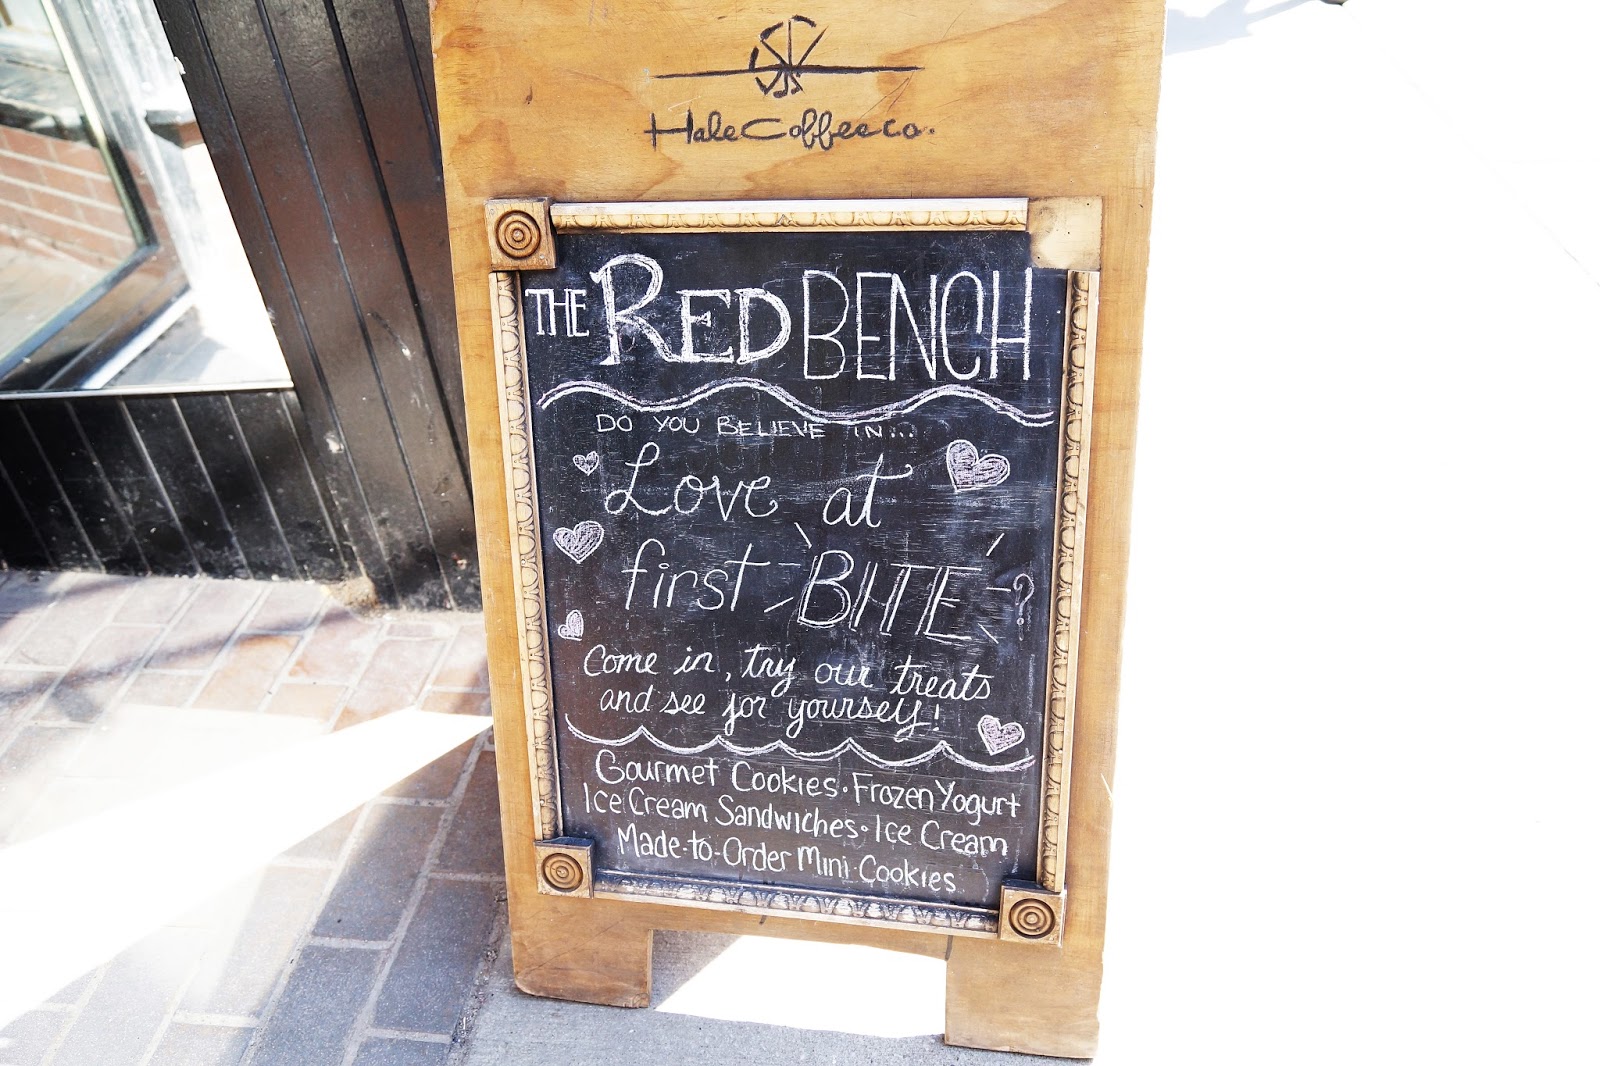 Hale Coffee co.
THE RED BENCH
DO YOU BELIEVE IN...
Love at
first BITE?
Come in, try our treats
and see for yourself!
Gourmet Cookies · Frozen Yogurt
Ice Cream Sandwiches · Ice Cream
Made-to-Order Mini Cookies